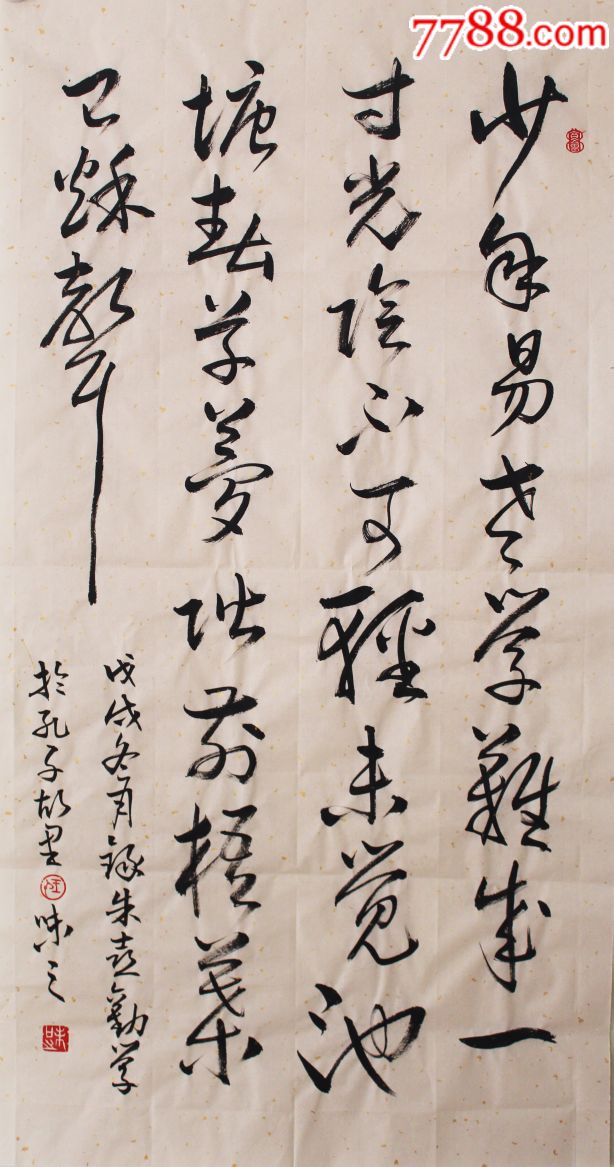 7788.com
少年易老学难成一
寸光阴不可轻未觉池
塘春草梦阶前梧叶
已秋声
戊戌冬月录朱熹劝学
于孔子故里
味之